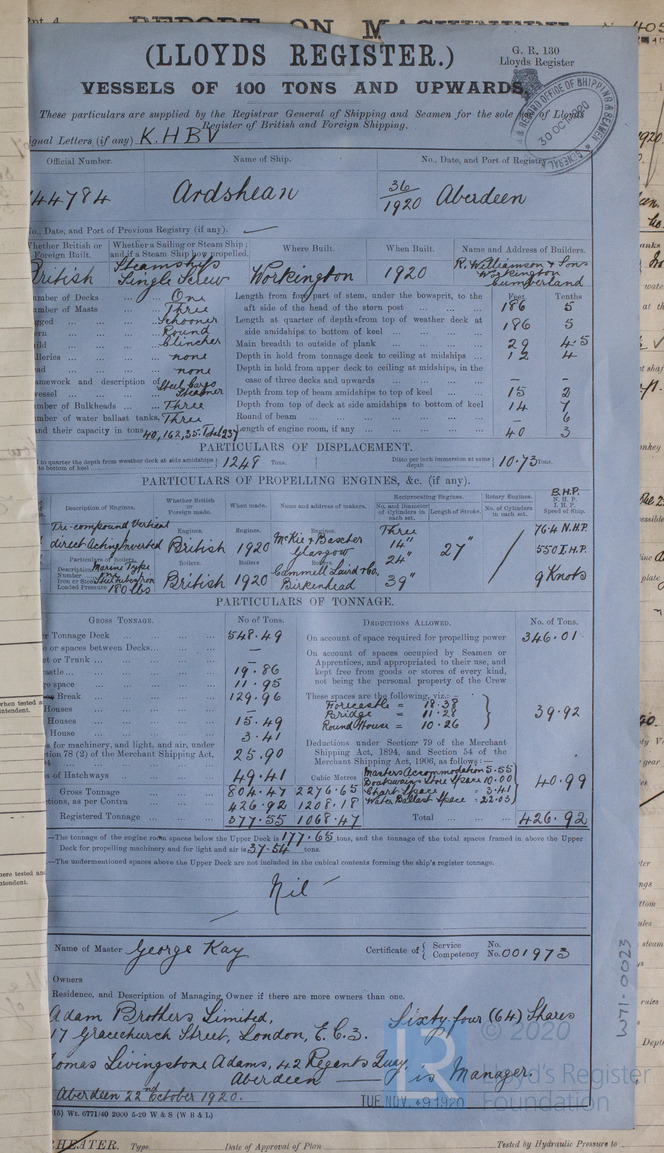 REPORT ON MACHINERY
(LLOYDS REGISTER.)
G. R. 130
Lloyds Register
VESSELS OF 100 TONS AND UPWARDS.
These particulars are supplied by the Registrar General of Shipping and Seamen for the sole of Lloyds
Register of British and Foreign Shipping.
RECORD OFFICE OF SHIPPING & SEAMEN
30 OCT 1920
GENERAL
ignal Letters (if any) K.H.B.V
Official Number. Name of Ship. No., Date, and Port of Registry
44784 Ardshean 36/1920 Aberdeen
o., Date, and Port of Previous Registry (if any). —
Whether British or Foreign Built. Whether a Sailing or Steam Ship; and if a Steam Ship how propelled. Where Built. When Built. Name and Address of Builders.
British Steamship Single Screw Workington 1920 R. Williamson & Sons Workington Cumberland
umber of Decks One
umber of Masts Three
gged Schooner
ern Round
ild Clincher
lleries none
ad none
amework and description of vessel Steel Cargo Steamer
umber of Bulkheads Three
umber of water ballast tanks, Three
and their capacity in tons 40, 162, 35. Total 237
Feet Tenths
Length from fore part of stem, under the bowsprit, to the aft side of the head of the stern post 186 5
Length at quarter of depth from top of weather deck at side amidships to bottom of keel 186 5
Main breadth to outside of plank 29 4.5
Depth in hold from tonnage deck to ceiling at midships 12 4
Depth in hold from upper deck to ceiling at midships, in the case of three decks and upwards — —
Depth from top of beam amidships to top of keel 15 2
Depth from top of deck at side amidships to bottom of keel 14 7
Round of beam — 6
Length of engine room, if any 40 3
PARTICULARS OF DISPLACEMENT.
l to quarter the depth from weather deck at side amidships to bottom of keel 1248 Tons. Ditto per inch immersion at same depth 10.73 Tons.
PARTICULARS OF PROPELLING ENGINES, &c. (if any).
Description of Engines. Whether British or Foreign made. When made. Name and address of makers. Reciprocating Engines. No. and Diameter of Cylinders in each set. Length of Stroke. Rotary Engines. No. of Cylinders in each set. B.H.P. N.H.P. I.H.P. Speed of Ship.
Tri-compound Vertical direct Acting Inverted
Engines. British Engines. 1920 Engines. McKie & Baxter Glasgow
Three 14" 24" 39" 27"
76.4 N.H.P.
550 I.H.P.
9 Knots
Particulars of Boilers.
Description Marine Type
Number One
Iron or Steel
Loaded Pressure 180 lbs
Boilers. British Boilers 1920 Boilers. Cammell Laird & Co. Birkenhead
PARTICULARS OF TONNAGE.
GROSS TONNAGE. No of Tons.
r Tonnage Deck 548.49
e or spaces between Decks —
et or Trunk —
astle 19.86
ge space 11.95
Break 129.96
Houses —
Houses 15.49
House 3.41
s for machinery, and light, and air, under
tion 78 (2) of the Merchant Shipping Act, 25.90
s of Hatchways 49.41 Cubic Metres
Gross Tonnage 804.47 2276.65
ctions, as per Contra 426.92 1208.18
Registered Tonnage 377.55 1068.47
DEDUCTIONS ALLOWED. No. of Tons.
On account of space required for propelling power 346.01
On account of spaces occupied by Seamen or Apprentices, and appropriated to their use, and kept free from goods or stores of every kind, not being the personal property of the Crew
These spaces are the following, viz.:—
Forecastle = 18.38
Bridge = 11.28
Round House = 10.26
39.92
Deductions under Section 79 of the Merchant Shipping Act, 1894, and Section 54 of the Merchant Shipping Act, 1906, as follows:—
Masters Accommodation 5.55
Boatswains Store Space 10.00
Chart Space = 3.41
Water Ballast Space = 22.03
40.99
Total 426.92
—The tonnage of the engine room spaces below the Upper Deck is 177.65 tons, and the tonnage of the total spaces framed in above the Upper
Deck for propelling machinery and for light and air is 37.54 tons.
—The undermentioned spaces above the Upper Deck are not included in the cubical contents forming the ship's register tonnage.
Nil
Name of Master George Kay Certificate of { Service No. Competency No. 001973
Owners
Residence, and Description of Managing Owner if there are more owners than one.
Adam Brothers Limited, Sixty four (64) Shares
17 Gracechurch Street, London, E.C.3.
omas Livingstone Adams, 42 Regents Quay,
Aberdeen — is Manager.
Aberdeen 22nd October 1920.
TUE. NOV. -9 1920
© 2020
LR
Lloyd's Register
Foundation
W71-0023
15) Wt. 6771/40 2000 5-20 W & S (W B & L)
HEATER. Type Date of Approval of Plan Tested by Hydraulic Pressure to